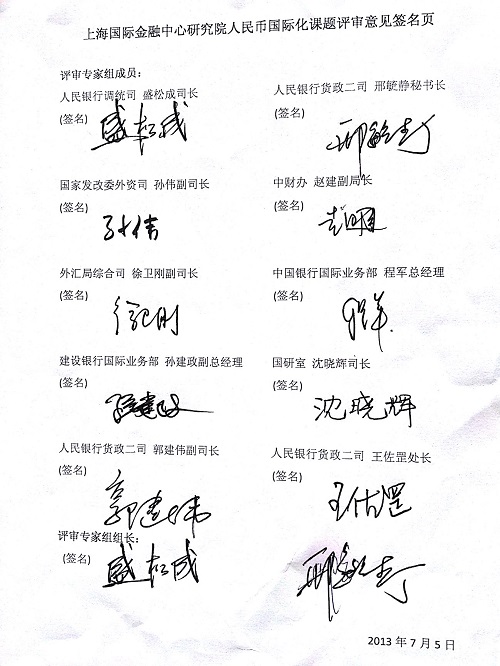 上海国际金融中心研究院人民币国际化课题评审意见签名页
评审专家组成员:
人民银行调统司 盛松成司长
(签名) 盛松成
人民银行货政二司 邢毓静秘书长
(签名) 邢毓静
国家发改委外资司 孙伟副司长
(签名) 孙伟
中财办 赵建副局长
(签名)
外汇局综合司 徐卫刚副司长
(签名) 徐卫刚
中国银行国际业务部 程军总经理
(签名) 程军
建设银行国际业务部 孙建政副总经理
(签名) 孙建政
国研室 沈晓辉司长
(签名) 沈晓辉
人民银行货政二司 郭建伟副司长
(签名) 郭建伟
人民银行货政二司 王佐罡处长
(签名) 王佐罡
评审专家组组长:
(签名) 盛松成 邢毓静
2013 年 7 月 5 日